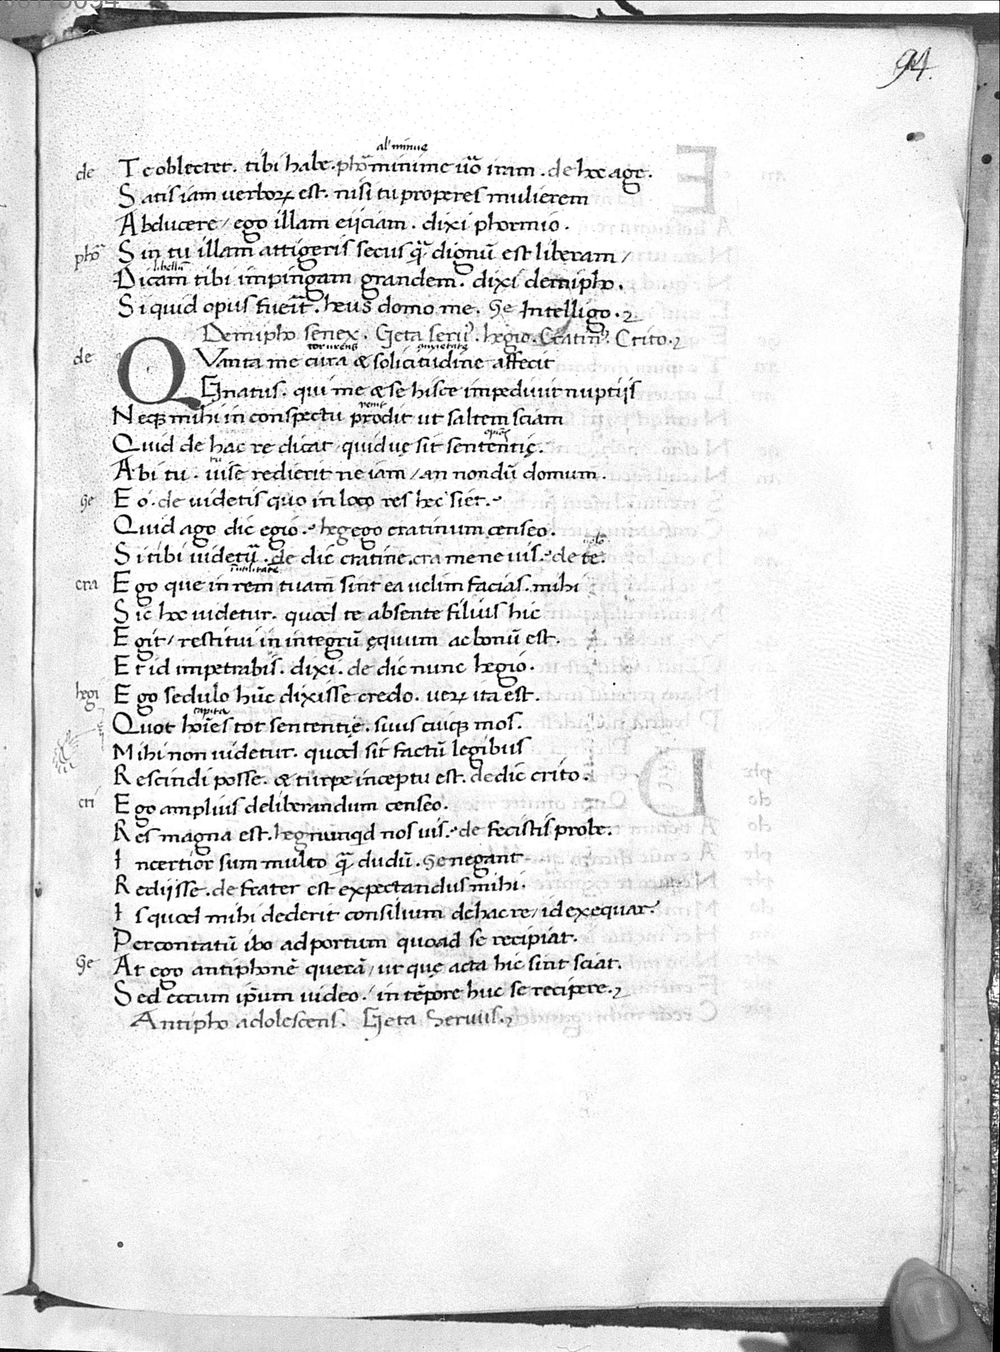 94.
al' minue
de Te oblectet. tibi habe. phō minime uō iram. de hoc age.
Satis iam uerboꝝ est. nisi tu properes mulierem
Abducere / ego illam eijciam. dixi phormio.
phō Sin tu illam attigeris secus q̄ dignū est liberam /
libellū
Dicam tibi impingam grandem. dixi demipho.
Si quid opus fuerit. heus domo me. Ge Intelligo.
Demipho senex. Geta seru⁹. hegio. Cratin⁹. Crito.
torquens anxietate
de QVanta me cura & solicitudine affecit
Gnatus. qui me & se hisce impediuit nuptijs
uenit
Neqꝫ mihi in conspectu prodit ut saltem sciam
Quid de hac re dicat / quidue sit sententię.
Abi tu. uise redierit ne iam / an nondū domum.
ge Eo. de uidetis quo in loco res hec siet.
Quid ago dic egio. heg ego cratinum censeo.
Si tibi uidetur. de dic cratine. cra mene uis. de te.
utilitatē
cra Ego que in rem tuam sint ea uelim facias. mihi
Sic hoc uidetur. quod te absente filius hic
Egit / restitui in integrū ęquum ac bonū est.
Et id impetrabis. dixi. de dic nunc hegio.
hegi Ego sedulo hūc dixisse credo. ueꝝ ita est.
capita
Quot hoīes tot sententię. suus cuiqꝫ mos.
Mihi non uidetur. quod sit factū legibus
Rescindi posse. & turpe inceptu est. de dic crito.
cri Ego amplius deliberandum censeo.
Res magna est. heg nunqd nos uis. de fecistis probe.
Incertior sum multo q̄ dudū. Ge negant
Redijsse. de frater est expectandus mihi.
Is quod mihi dederit consilium de hac re / id exequar.
Percontatū ibo ad portum quoad se recipiat.
Ge At ego antiphonē querā / ut quę acta hic sint sciat.
Sed eccum ipsum uideo. in tēpore huc se recipere.
Antipho adolescens. Geta Seruus.